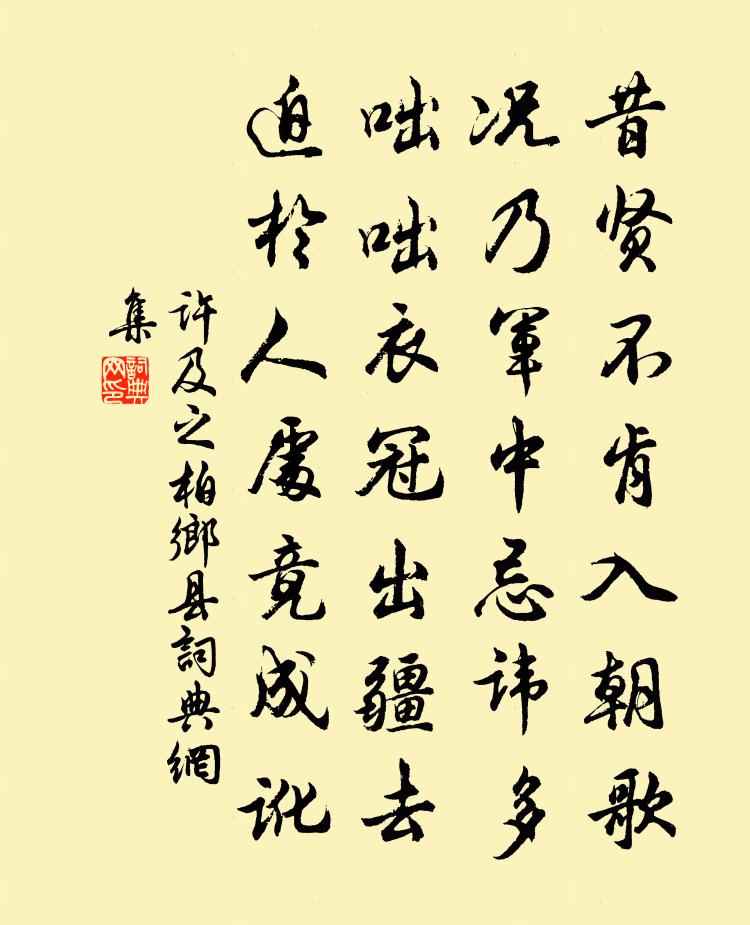 昔贤不肯入朝歌
况乃军中忌讳多
咄咄衣冠出疆去
迫於人处竟成讹
许及之柏乡县词典网
集
词典
网印